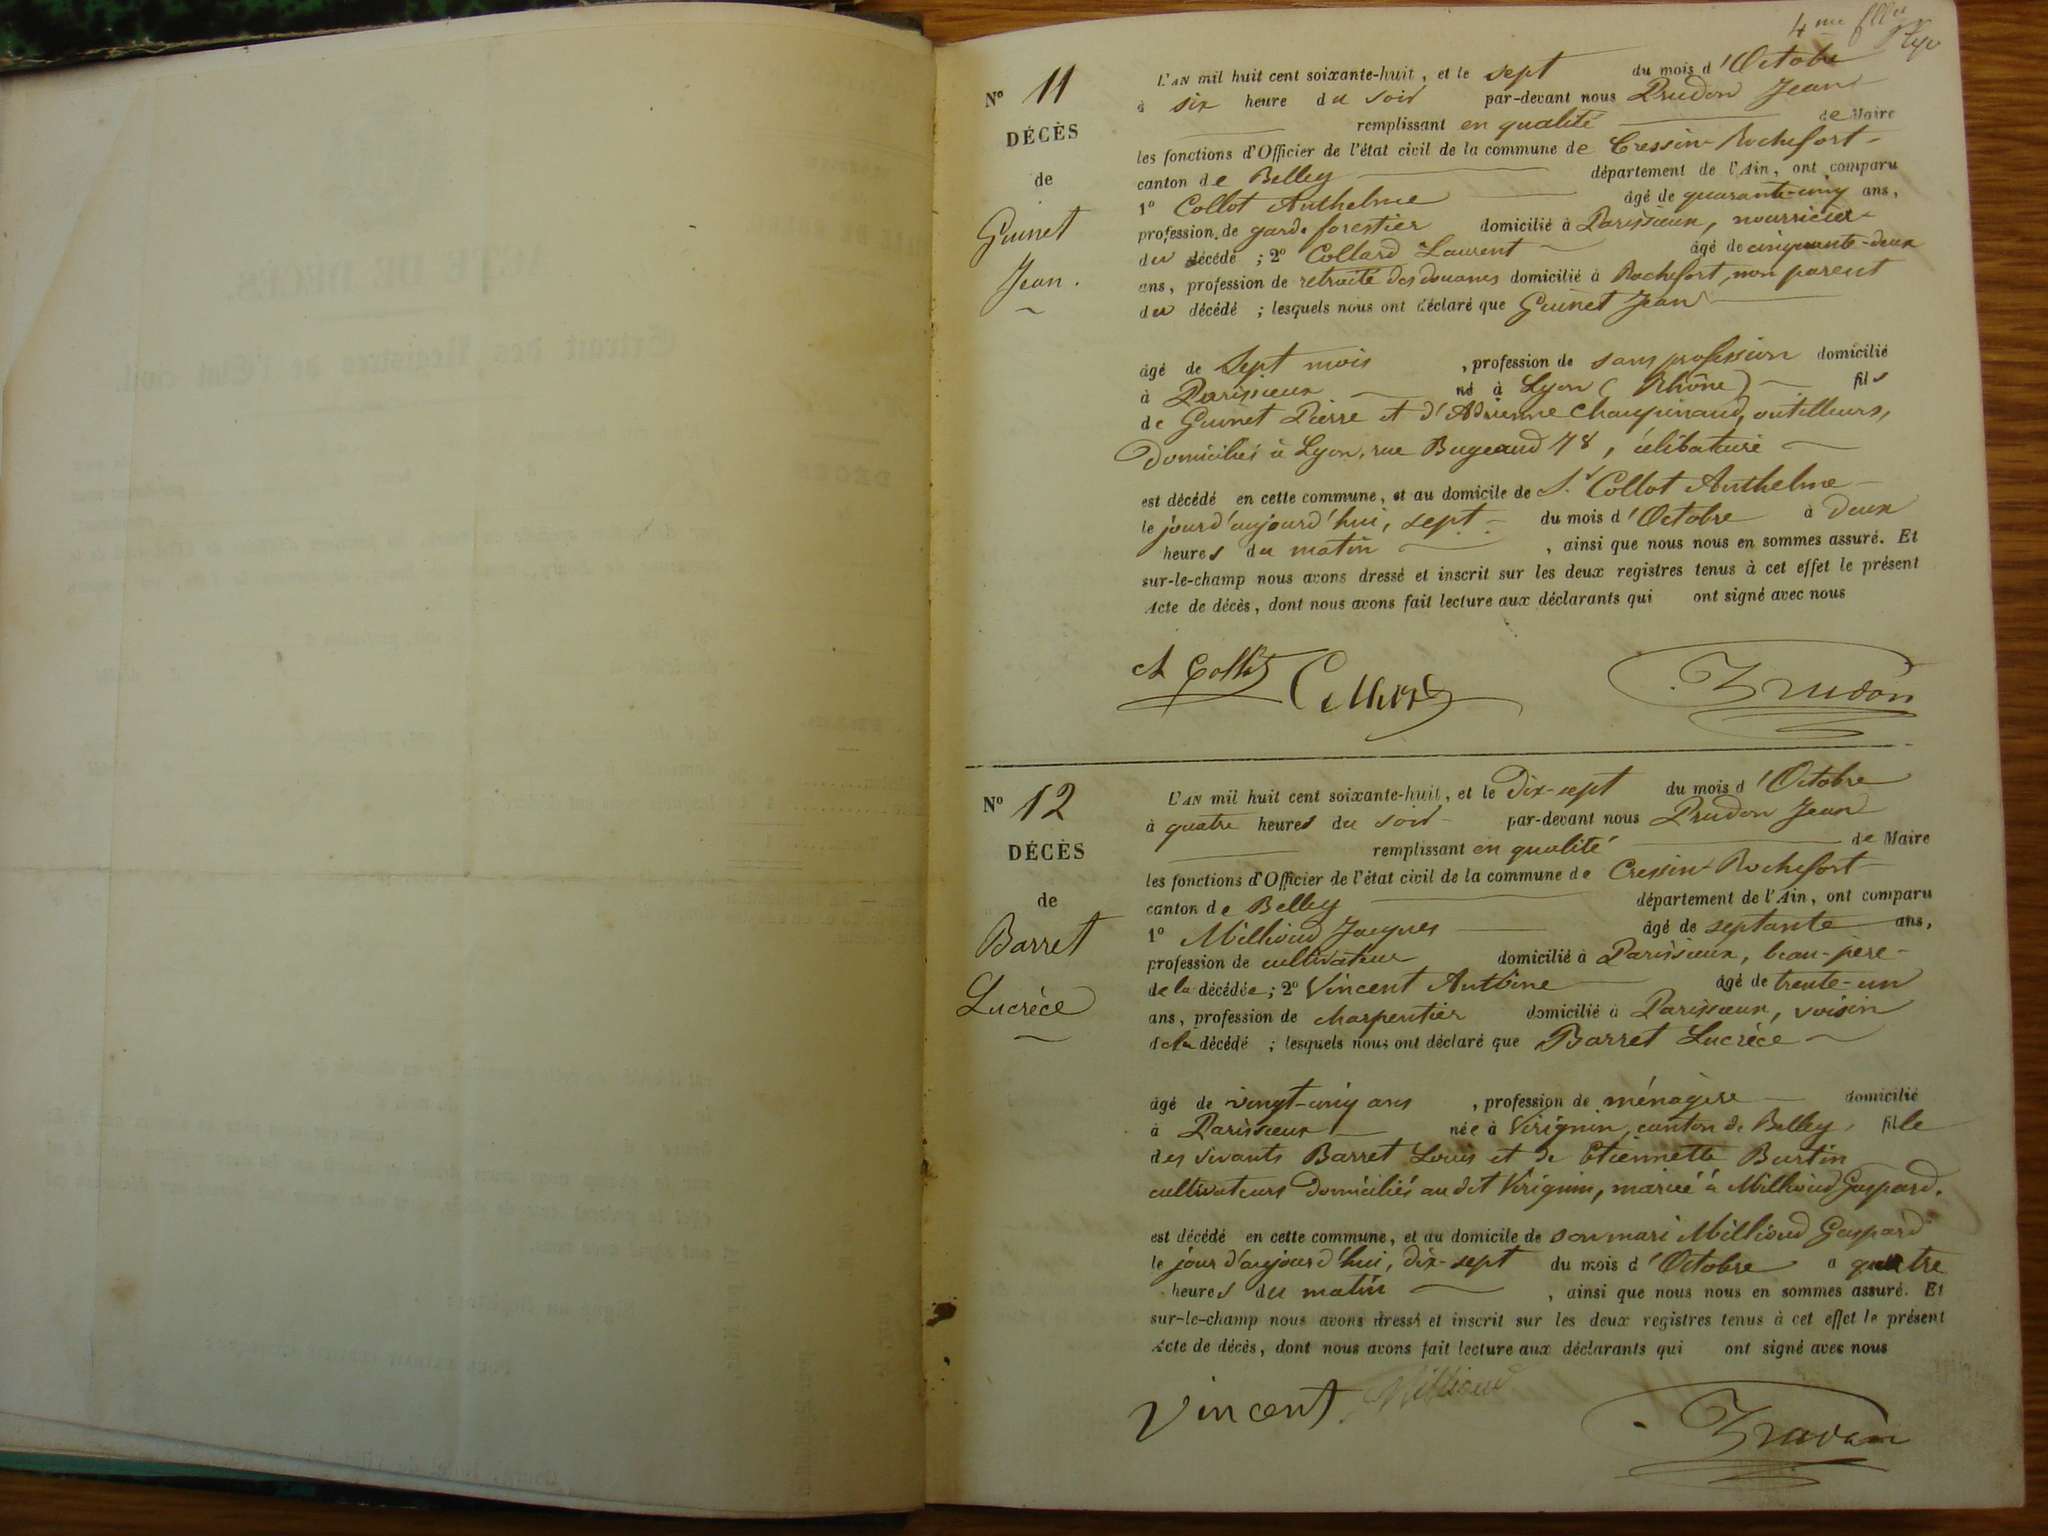 4me
Nº 11
DÉCÈS
de
Guinet
Jean.
L'AN mil huit cent soixante-huit, et le sept du mois d'Octobre
à six heure du soir par-devant nous Prudon Jean
remplissant en qualité de Maire
les fonctions d'Officier de l'état civil de la commune de Cressin-Rochefort
canton de Belley département de l'Ain, ont comparu
1º Collot Anthelme âgé de quarante-cinq ans,
profession de garde forestier domicilié à Parissieux, nourricier
du décédé ; 2º Collard Laurent âgé de cinquante-deux
ans, profession de retraité des douanes domicilié à Rochefort, non parent
du décédé ; lesquels nous ont déclaré que Guinet Jean
âgé de Sept mois , profession de sans profession domicilié
à Parissieux né à Lyon (Rhône) fils
de Guinet Pierre et d'Adrienne outilleurs,
Domiciliés à Lyon, rue Bugeaud 48, célibataire
est décédé en cette commune, et au domicile de Sr Collot Anthelme
le jour d'aujourd'hui, sept du mois d'Octobre à deux
heures du matin , ainsi que nous nous en sommes assuré. Et
sur-le-champ nous avons dressé et inscrit sur les deux registres tenus à cet effet le présent
Acte de décès, dont nous avons fait lecture aux déclarants qui ont signé avec nous
A Collot Collard Prudon
Nº 12
DÉCÈS
de
Barret
Lucrèce
L'AN mil huit cent soixante-huit, et le Dix-sept du mois d'Octobre
à quatre heures du soir par-devant nous Prudon Jean
remplissant en qualité de Maire
les fonctions d'Officier de l'état civil de la commune de Cressin-Rochefort
canton de Belley département de l'Ain, ont comparu
1º Millioud Jacques âgé de septante ans,
profession de cultivateur domicilié à Parissieux, beau-père
de la décédée ; 2º Vincent Antoine âgé de trente-un
ans, profession de charpentier domicilié à Parissieux, voisin
de la décédé ; lesquels nous ont déclaré que Barret Lucrèce
âgé de vingt-cinq ans , profession de ménagère domicilié
à Parissieux née à Virignin, canton de Belley, fille
des vivants Barret Louis et de Etiennette Burtin
cultivateurs Domiciliés au dit Virignin, mariée à Millioud Gaspard.
est décédé en cette commune, et au domicile de son mari Millioud Gaspard
le jour d'aujourd'hui, dix-sept du mois d'Octobre à quatre
heures du matin , ainsi que nous nous en sommes assuré. Et
sur-le-champ nous avons dressé et inscrit sur les deux registres tenus à cet effet le présent
Acte de décès, dont nous avons fait lecture aux déclarants qui ont signé avec nous
Vincent Millioud Prudon